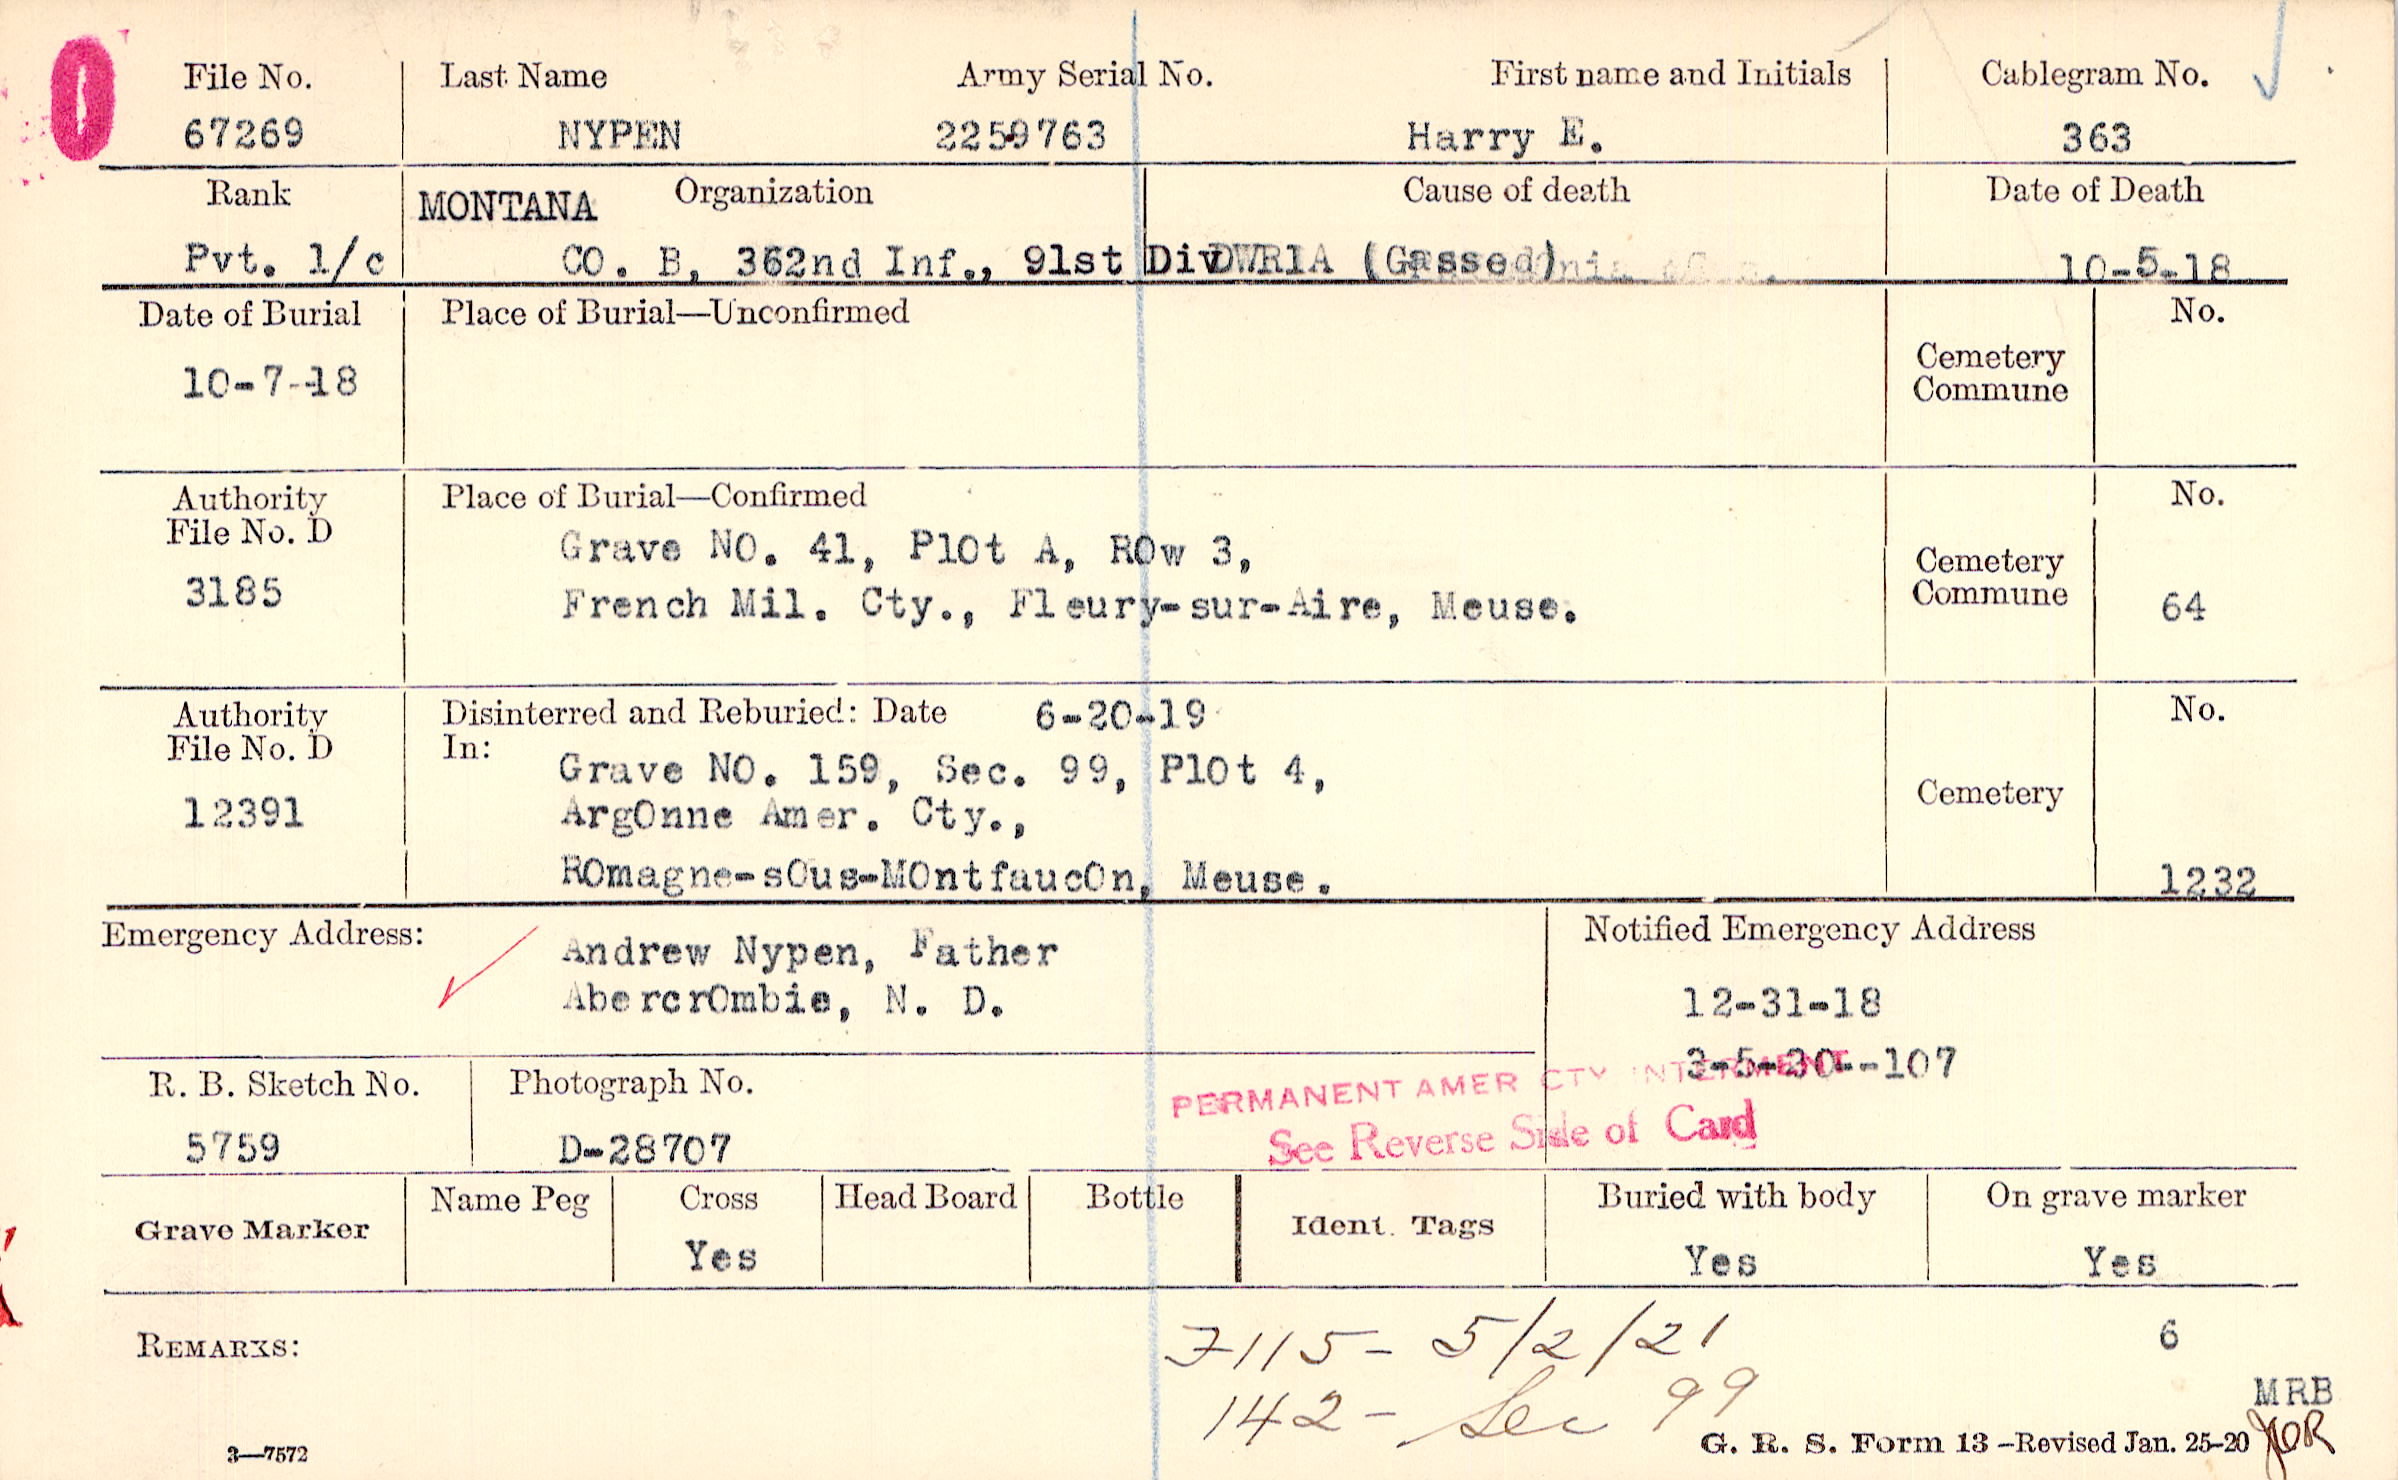 File No. Last Name Army Serial No. First name and Initials Cablegram No.
67269 NYPEN 2259763 Harry E. 363
Rank MONTANA Organization Cause of death Date of Death
Pvt. 1/c CO. B, 362nd Inf., 91st Div DWRIA (Gassed) 10-5-18
Date of Burial Place of Burial—Unconfirmed No.
10-7-18 Cemetery
Commune
Authority Place of Burial—Confirmed No.
File No. D Grave NO. 41, Pl0t A, R0w 3, Cemetery
3185 French Mil. Cty., Fleury-sur-Aire, Meuse. Commune 64
Authority Disinterred and Reburied: Date 6-20-19 No.
File No. D In:
Grave NO. 159, Sec. 99, Pl0t 4, Cemetery
12391 Arg0nne Amer. Cty.,
R0magne-s0us-M0ntfauc0n, Meuse. 1232
Emergency Address: Andrew Nypen, Father Notified Emergency Address
Abercr0mbie, N. D. 12-31-18
3-5-30--107
R. B. Sketch No. Photograph No. PERMANENT AMER CTY INTERMENT
5759 D-28707 See Reverse Side of Card
Grave Marker Name Peg Cross Head Board Bottle Ident. Tags Buried with body On grave marker
Yes Yes Yes
REMARKS: 7115- 5/2/21 6
142- Sec 99 MRB
3—7572 G. R. S. Form 13 –Revised Jan. 25-20